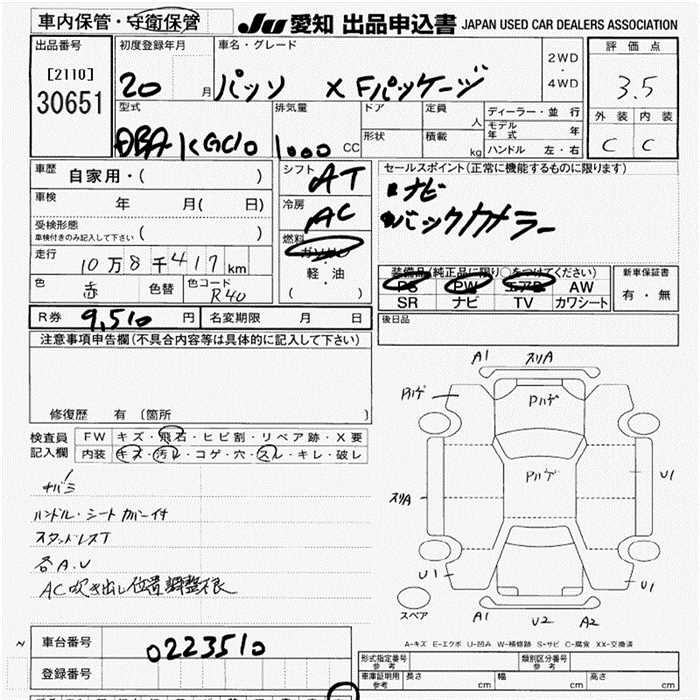 車内保管・守衛保管
JU 愛知 出品申込書 JAPAN USED CAR DEALERS ASSOCIATION
出品番号
[2110]
30651
初度登録年月
20 月
車名・グレード
パッソ X Fパッケージ
2WD
・
4WD
評価点
3.5
外装 内装
C C
型式
DBA KGC10
排気量
1000 CC
ドア
形状
定員
人
積載
kg
ディーラー・並行
モデル年式 年
ハンドル 左・右
車歴
自家用・( )
車検
年 月( 日)
受検形態
車検付きのみ記入して下さい ( )
走行
10万8千417km
色
赤
色替
色コード
R40
シフト
AT
冷房
AC
燃料
ガソリン
軽・油
( )
セールスポイント(正常に機能するものに限ります)
ナビ
バックカメラー
装備品(純正品に限り○をつけてください)
PS PW エアB AW
SR ナビ TV カワシート
新車保証書
有・無
R券 9,510 円
名変期限 月 日
後日品
注意事項申告欄(不具合内容等は具体的に記入して下さい)
修復歴 有 〔箇所 〕
検査員
記入欄
FW キズ・飛石・ヒビ割・リペア跡・X要
内装 キズ・汚レ・コゲ・穴・スレ・キレ・破レ
ナバミ
ハンドル・シートカバー付
スタッドレスT
各A.U
AC吹き出し位置調整不良
A1 スリA
Pハゲ
Pハゲ
Pハゲ
スリA
U1
U1
U1
スペア
A1 U2 A2
A-キズ E-エクボ U-凹み W-補修跡 S-サビ C-腐食 XX-交換済
車台番号
0223510
登録番号
形式指定番号
参考
類別区分番号
参考
車庫証明用
参考
長さ cm
幅 cm
高さ cm